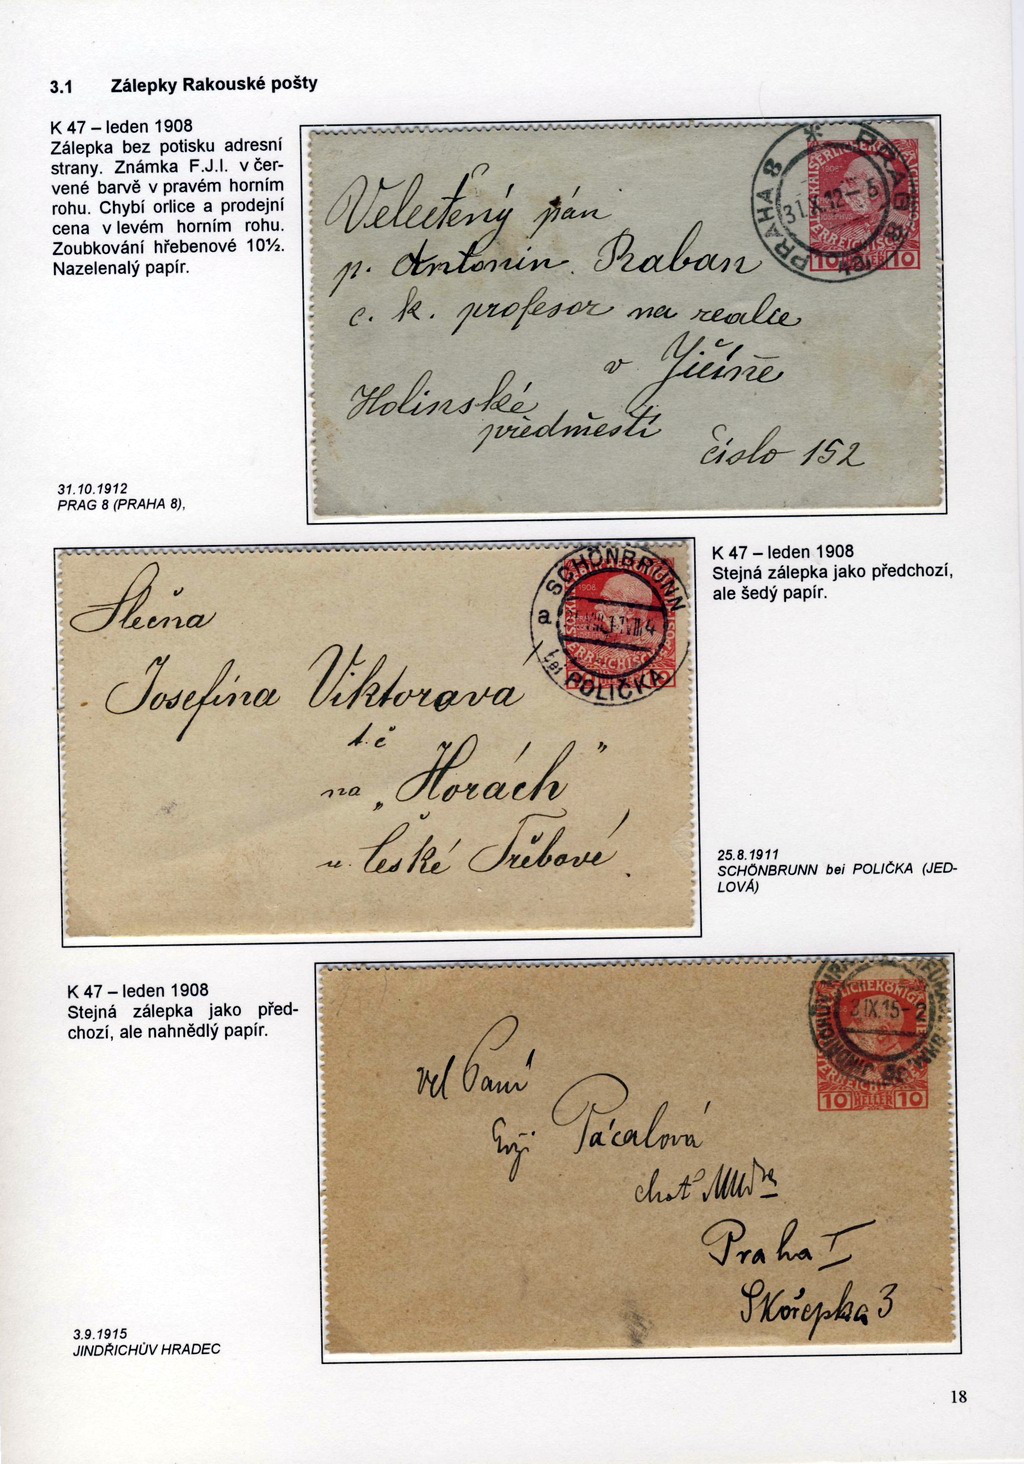 3.1 Zálepky Rakouské pošty
K 47 – leden 1908
Zálepka bez potisku adresní
strany. Známka F.J.I. v čer-
vené barvě v pravém horním
rohu. Chybí orlice a prodejní
cena v levém horním rohu.
Zoubkování hřebenové 10½.
Nazelenalý papír.
31.10.1912
PRAG 8 (PRAHA 8),
PRAHA 8 * PRAG 8
31.X.12-5
10 HELLER 10
Velectěný pán
p. Antonín Raban
c. k. profesor na realce
v Jičíně
Holinské
předměstí
číslo 152
K 47 – leden 1908
Stejná zálepka jako předchozí,
ale šedý papír.
25.8.1911
SCHÖNBRUNN bei POLIČKA (JED-
LOVÁ)
a SCHÖNBRUNN
bei POLIČKA
Slečna
Josefína Viktorova
t. č
na „Horách”
u České Třebové
K 47 – leden 1908
Stejná zálepka jako před-
chozí, ale nahnědlý papír.
3.9.1915
JINDŘICHŮV HRADEC
3.IX.15-2
10 HELLER 10
Vel Paní
Pácalová
choť MUDra
Praha I
Skořepka 3
18